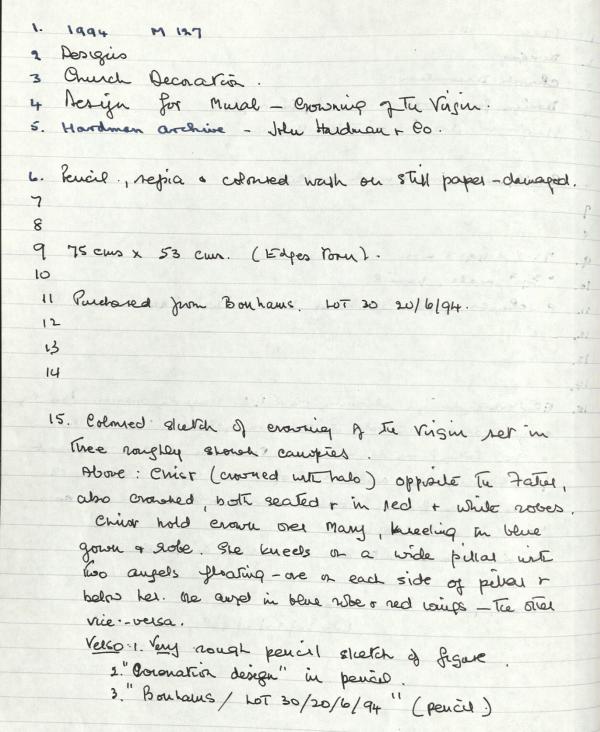 1. 1994 M 127
2 Designs
3 Church Decoration.
4 Design for Mural – Crowning of The Virgin.
5. Hardman archive – John Hardman & Co.
6. Pencil, sepia & coloured wash on stiff paper – damaged.
7
8
9 75 cms x 53 cms. (Edges torn).
10
11 Purchased from Bonhams. LOT 30 20/6/94.
12
13
14
15. Coloured sketch of crowning of the Virgin set in
three roughly shown canopies.
Above: Christ (crowned with halo) opposite The Father,
also crowned, both seated & in red & white robes.
Christ hold crown over Mary, kneeling, in blue
gown & robe. She kneels on a wide pillar with
two angels floating – one on each side of pillar &
below her. One angel in blue robe & red wings – The other
vice-versa.
Verso: 1. Very rough pencil sketch of figure.
2. "Coronation design" in pencil.
3. "Bonhams / LOT 30/20/6/94" (pencil)